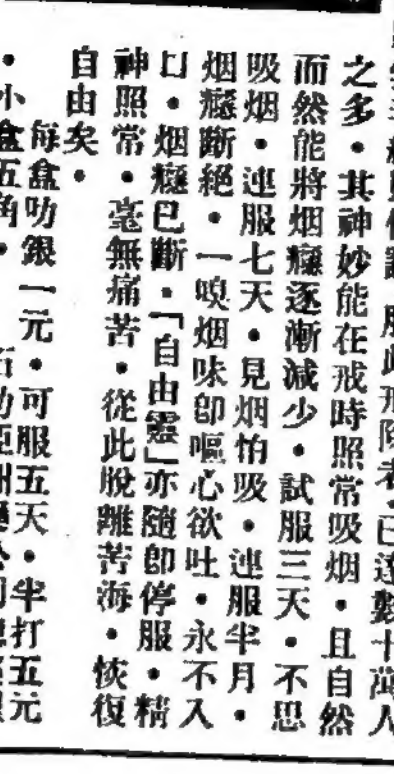 服此戒除者·已達數十萬人
之多·其神妙能在戒時照常吸烟·且自然
而然能將烟癮逐漸減少·試服三天·不思
吸烟·連服七天·見烟怕吸·連服半月·
烟癮斷絕·一嗅烟味卽嘔心欲吐·永不入
口·烟癮已斷·「自由靈」亦隨卽停服·精
神照常·毫無痛苦·從此脫離苦海·恢復
自由矣·
每盒叻銀一元·可服五天·半打五元
·小盒五角·